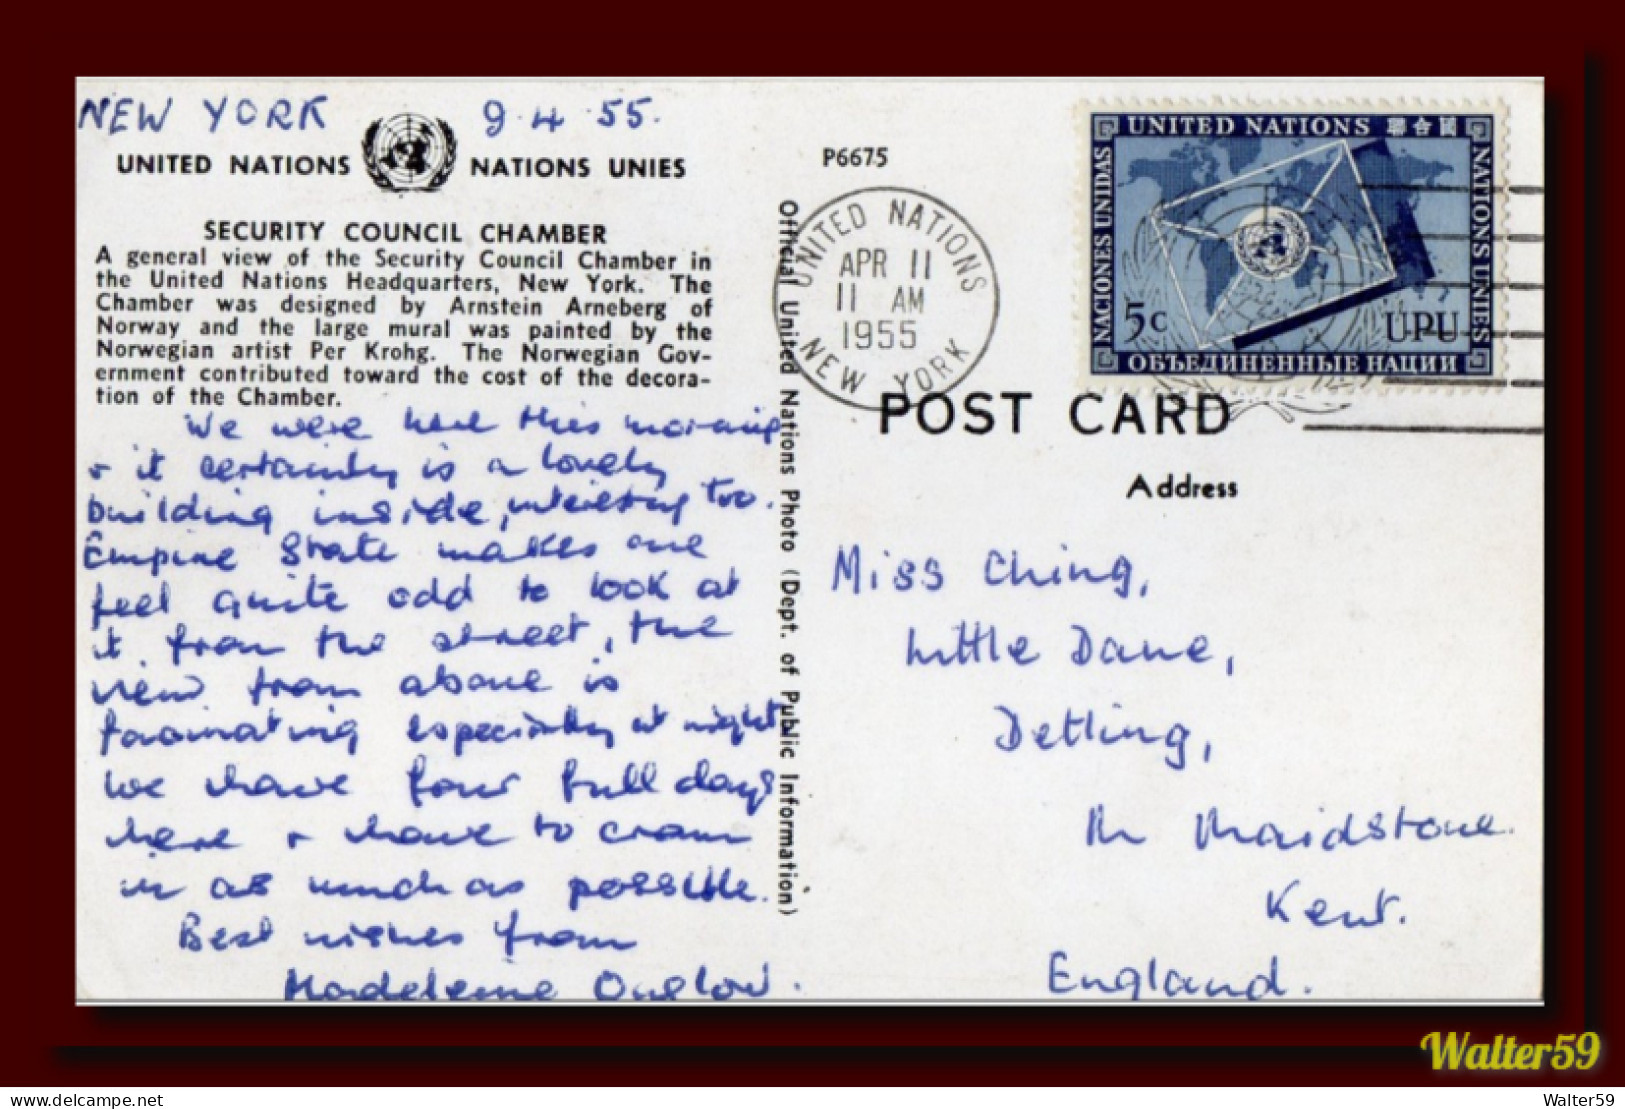 NEW YORK 9.4.55.
UNITED NATIONS NATIONS UNIES
SECURITY COUNCIL CHAMBER
A general view of the Security Council Chamber in
the United Nations Headquarters, New York. The
Chamber was designed by Arnstein Arneberg of
Norway and the large mural was painted by the
Norwegian artist Per Krohg. The Norwegian Gov-
ernment contributed toward the cost of the decora-
tion of the Chamber.
We were here this morning
& it certainly is a lovely
building inside, interesting too.
Empire State makes one
feel quite odd to look at
it from the street, the
view from above is
fascinating especially at night
We have four full days
here & have to cram
in as much as possible.
Best wishes from
Madeleine Onslow.
Official United Nations Photo (Dept. of Public Information)
P6675
UNITED NATIONS
APR 11
11 AM
1955
NEW YORK
UNITED NATIONS 聯合國
NACIONES UNIDAS
NATIONS UNIES
5c UPU
ОБЪЕДИНЕННЫЕ НАЦИИ
POST CARD
Address
Miss Ching,
Little Dane,
Detling,
Nr Maidstone.
Kent.
England.
Walter59
delcampe.net
Walter59